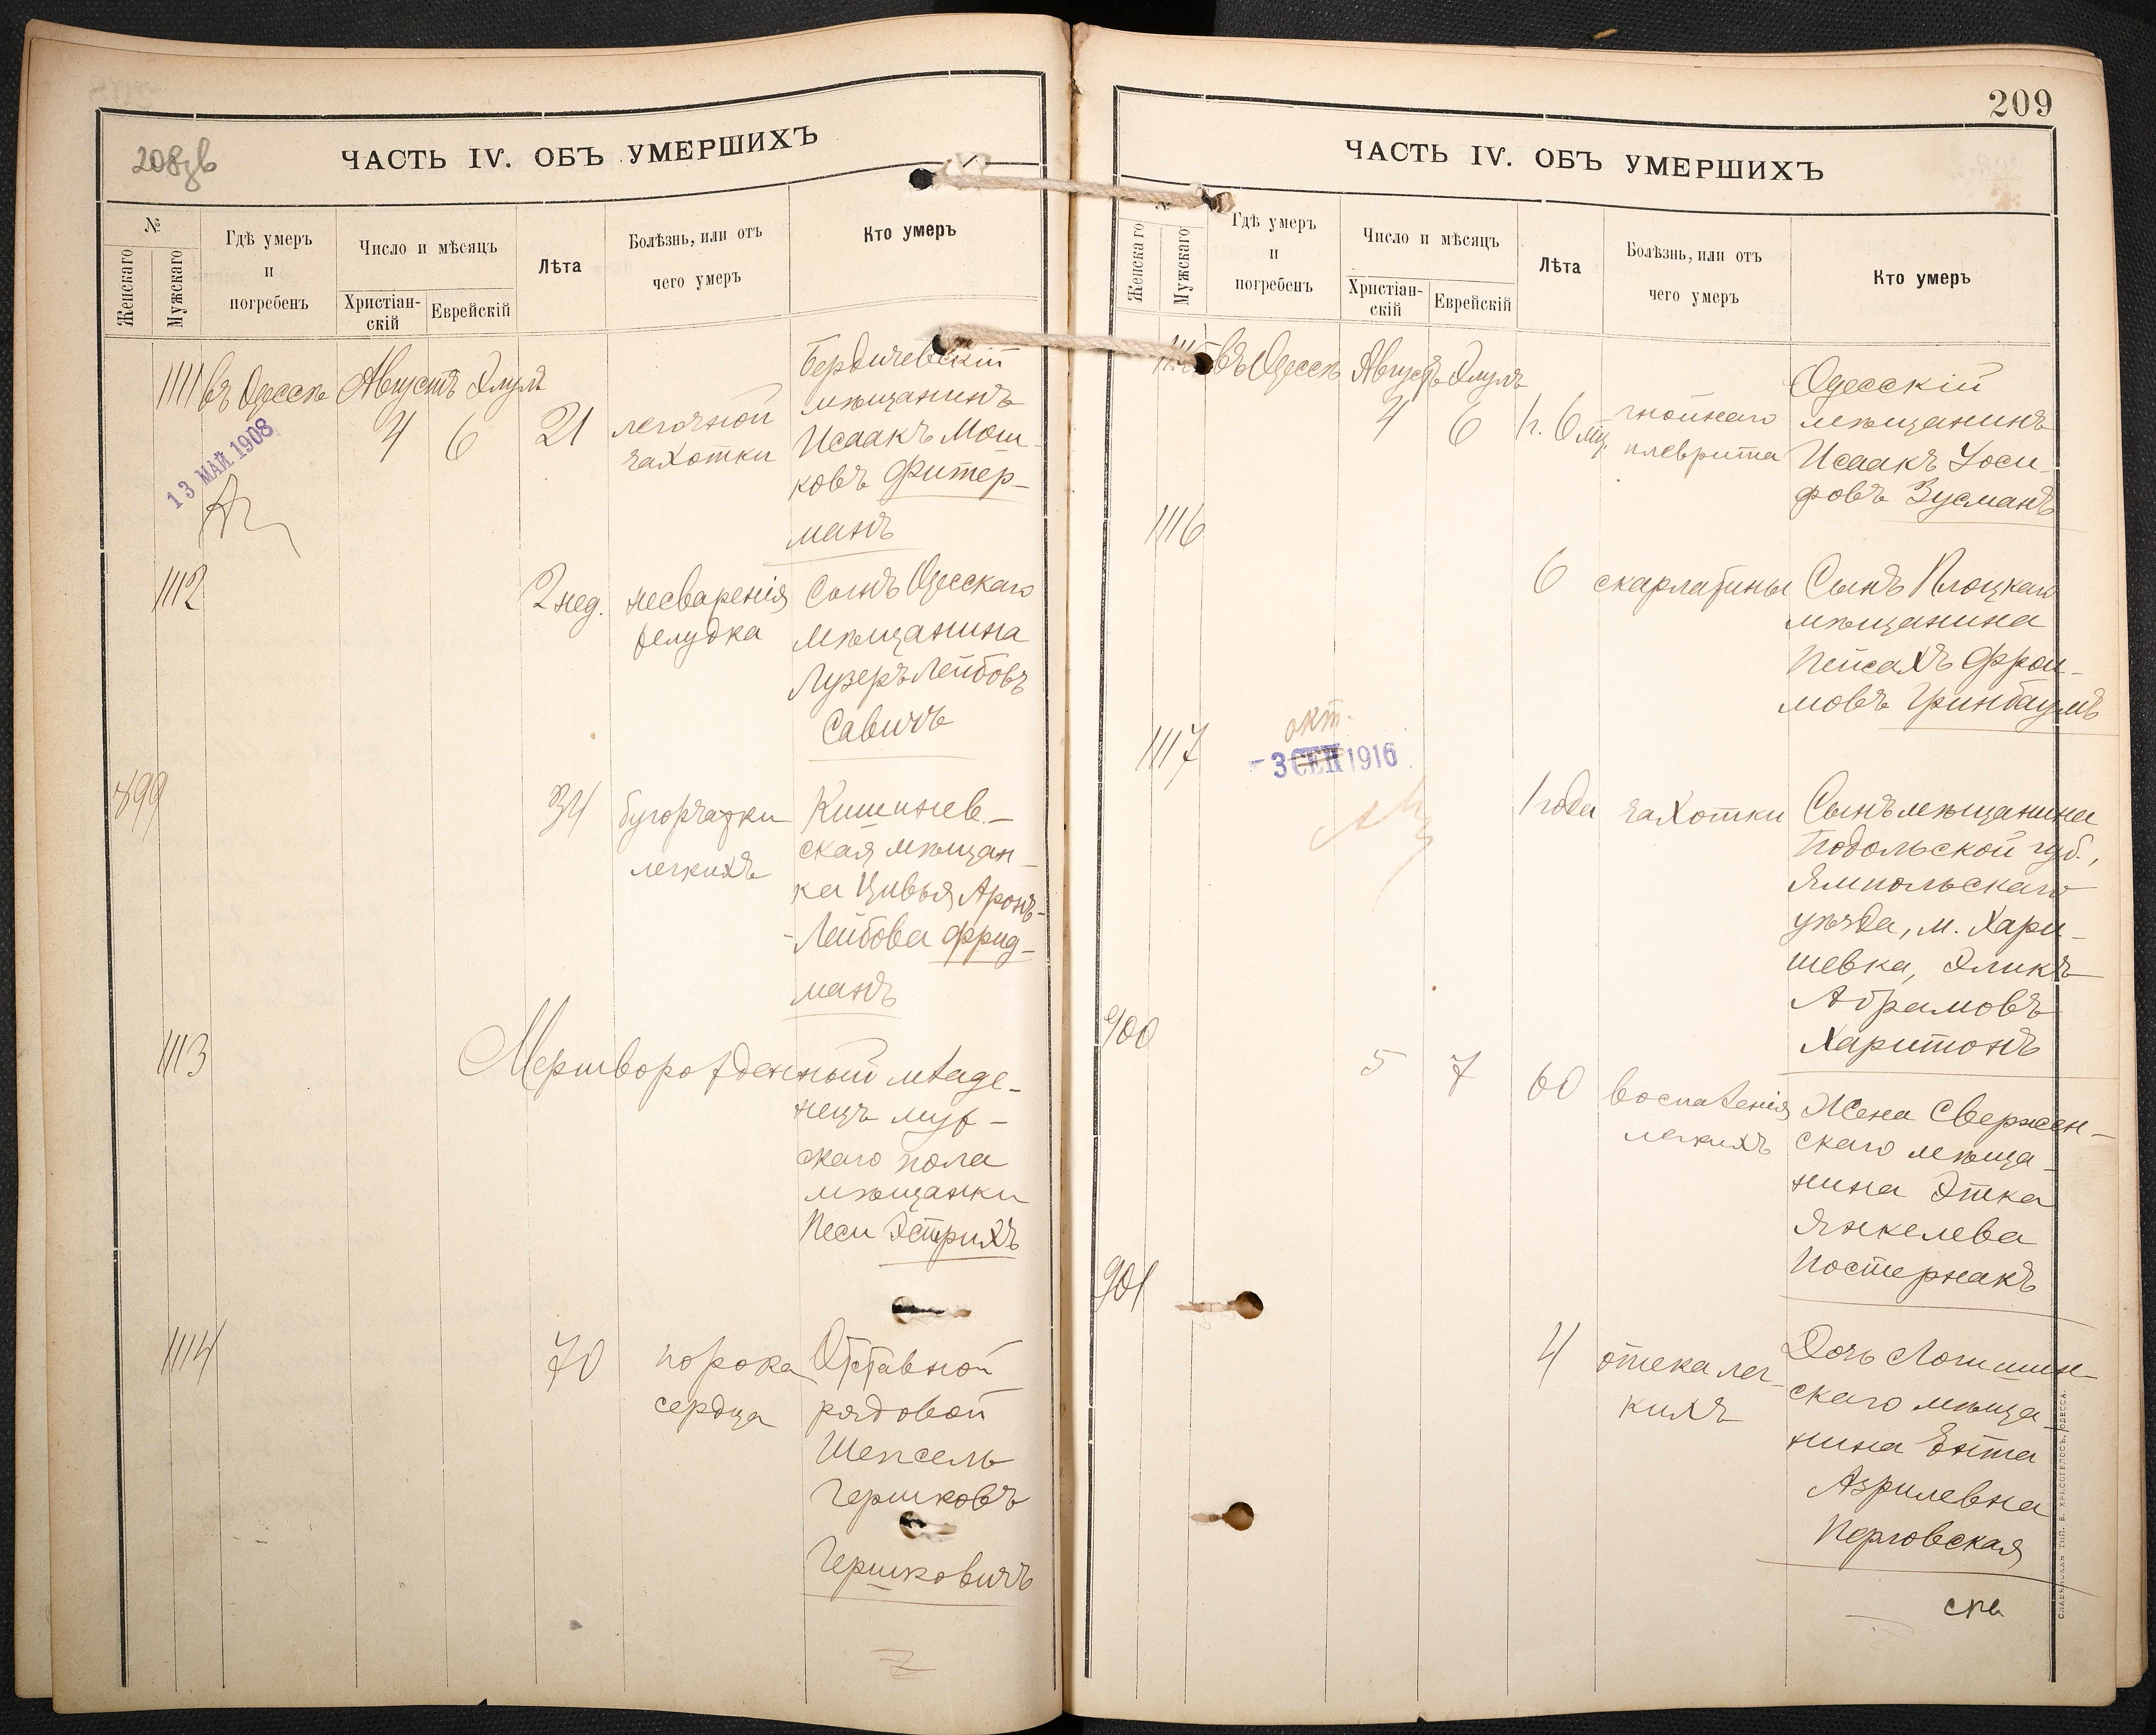 208 об
ЧАСТЬ IV. ОБЪ УМЕРШИХЪ
№
Женскаго
Мужскаго
Гдѣ умеръ
и
погребенъ
Число и мѣсяцъ
Христіан-
скій
Еврейскій
Лѣта
Болѣзнь, или отъ
чего умеръ
Кто умеръ
1111 въ Одессѣ Августъ Элулъ
4 6 21
легочной
чахотки
Бердичевскій
мѣщанинъ
Исаакъ Мош-
ковъ Фитер-
манъ
13 МАЙ 1908
1112
2 нед.
несваренія
желудка
Сынъ Одесскаго
мѣщанина
Лузеръ Лейбовъ
Савичъ
899
34
бугорчатки
легкихъ
Кишинев-
ская мѣщан-
ка Цивья Аронъ-
-Лейбова Фрид-
манъ
1113
Мертворожденный младе-
нецъ муж-
скаго пола
мѣщанки
Песи Эстрихъ
1114
70
порока
сердца
Отставной
рядовой
Шепсель
Гершковъ
Гершковичъ
209
ЧАСТЬ IV. ОБЪ УМЕРШИХЪ
№
Женскаго
Мужскаго
Гдѣ умеръ
и
погребенъ
Число и мѣсяцъ
Христіан-
скій
Еврейскій
Лѣта
Болѣзнь, или отъ
чего умеръ
Кто умеръ
1115 въ Одессѣ Августъ Элулъ
4 6 1 г. 6 мц.
гнойнаго
плеврита
Одесскій
мѣщанинъ
Исаакъ Іоси-
фовъ Зусманъ
1116
6
скарлатины
Сынъ Плоцкаго
мѣщанина
Пейсахъ Фрои-
мовъ Гринбаумъ
1117
окт.
- 3 СЕН 1916
1 года
чахотки
Сынъ мѣщанина
Подольской губ.,
Ямпольскаго
уѣзда, м. Хари-
шевка, Эликъ
Абрамовъ
Харитонъ
900
5 7 60
воспаленія
легкихъ
Жена Свержен-
скаго мѣща-
нина Этка
Янкелева
Постернакъ
901
4
отека лег-
кихъ
Дочь Логишин-
скаго мѣща-
нина Ента
Азрилевна
Перговская
СЛАВЯНСКАЯ ТИП. Е. ХРИСОГЕЛОСЪ, ОДЕССА.